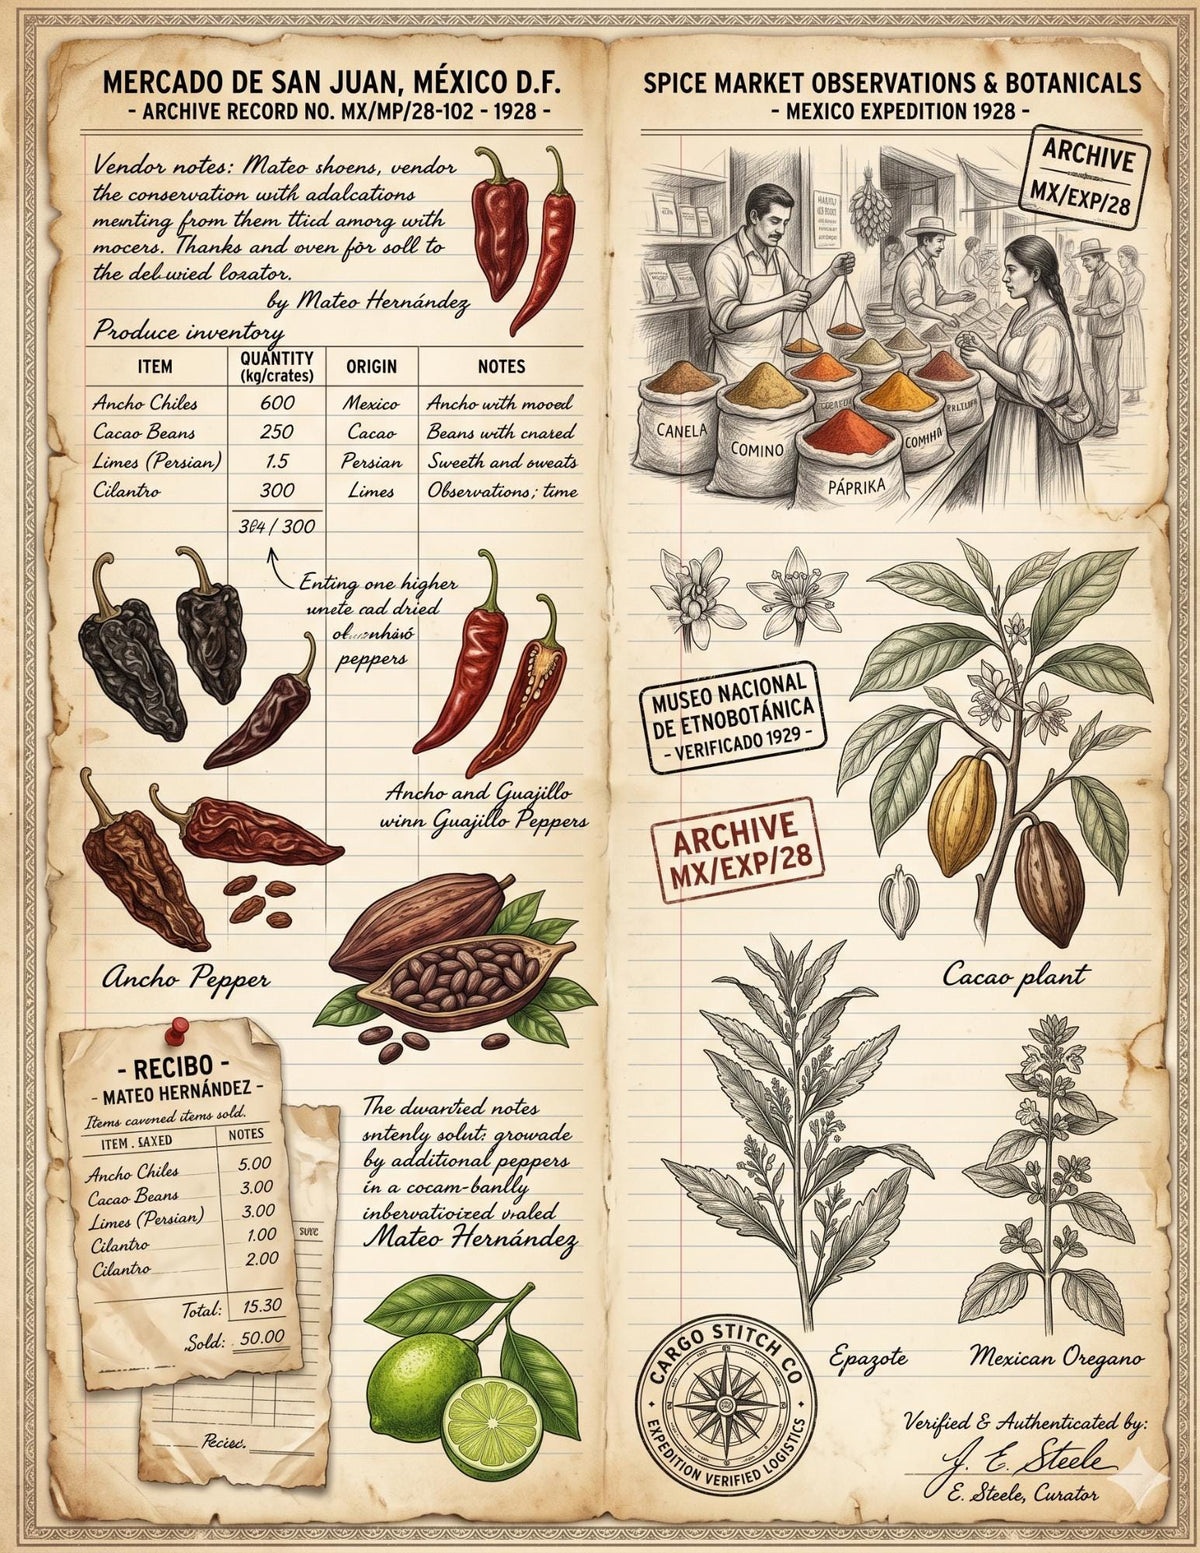 MERCADO DE SAN JUAN, MÉXICO D.F.
- ARCHIVE RECORD NO. MX/MP/28-102 - 1928 -
Vendor notes: Mateo shoens, vendor
the conservation with adalcations
mewting from them ttiid among with
mocers. Thanks and oven for soll to
the del wied lozator.
by Mateo Hernández
Produce inventory
ITEM QUANTITY (kg/crates) ORIGIN NOTES
Ancho Chiles 600 Mexico Ancho with mooed
Cacao Beans 250 Cacao Beans with cnared
Limes (Persian) 1.5 Persian Sweeth and oweats
Cilantro 300 Limes Observations; time
/ 300
Enting one higher
unete cad dried
peppers
Ancho and Guajillo
winn Guajillo Peppers
Ancho Pepper
- RECIBO -
- MATEO HERNÁNDEZ -
Items cavened items sold.
ITEM . SAXED NOTES
Ancho Chiles 5.00
Cacao Beans 3.00
Limes (Persian) 3.00
Cilantro 1.00
Cilantro 2.00
Total: 15.30
Sold: 50.00
The dwantied notes
sntenly solut: growade
by additional peppers
in a cocam-banlly
inbervatioized
Mateo Hernández
SPICE MARKET OBSERVATIONS & BOTANICALS
- MEXICO EXPEDITION 1928 -
ARCHIVE
MX/EXP/28
CANELA
COMINO
PÁPRIKA
MUSEO NACIONAL
DE ETNOBOTÁNICA
- VERIFICADO 1929 -
ARCHIVE
MX/EXP/28
Cacao plant
Epazote
Mexican Oregano
CARGO STITCH CO
EXPEDITION VERIFIED LOGISTICS
Verified & Authenticated by:
J. E. Steele
E. Steele, Curator